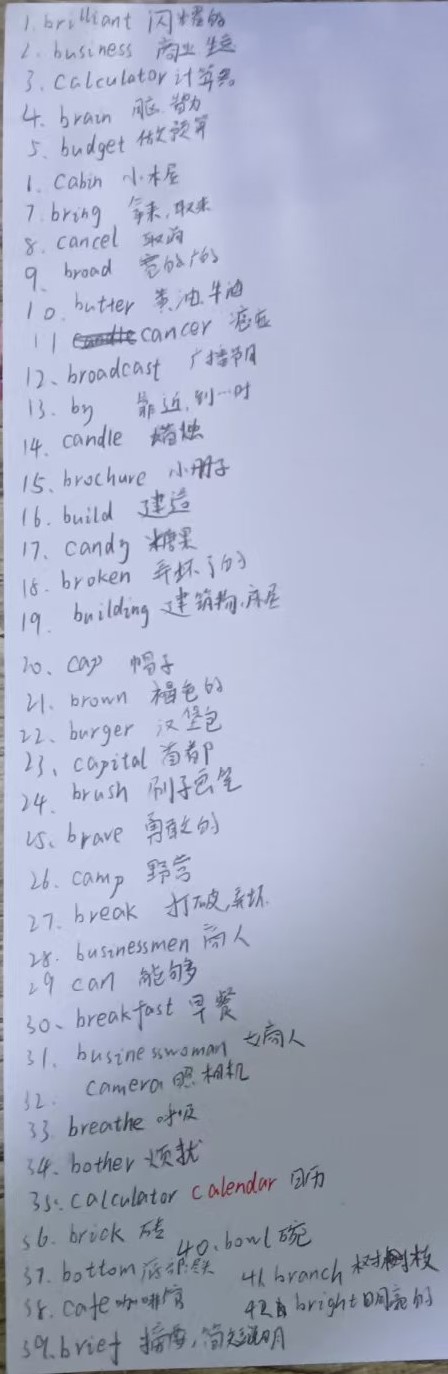 1. brilliant 闪耀的
2. business 商业 生意
3. calculator 计算器
4. brain 脑 智力
5. budget 做预算
6. cabin 小木屋
7. bring 拿来,取来
8. cancel 取消
9. broad 宽的广的
10. butter 黄油牛油
11 cancer 癌症
12、broadcast 广播节目
13. by 靠近,到一时
14. candle 蜡烛
15、brochure 小册子
16. build 建造
17. candy 糖果
18. broken 弄坏了的
19. building 建筑物,房屋
20、cap 帽子
21. brown 褐色的
22. burger 汉堡包
23、capital 首都
24. brush 刷子画笔
25、brave 勇敢的
26. camp 野营
27. break 打破弄坏
28. businessmen 商人
29 can 能够
30、breakfast 早餐
31. businesswoman 女商人
32. camera 照相机
33. breathe 呼吸
34. bother 烦扰
35. calculator calendar 日历
36. brick 砖 40、bowl 碗
37. bottom 41. branch 树枝
38. cafe 咖啡馆 42. bright 明亮的
39. brief 摘要,简短说明